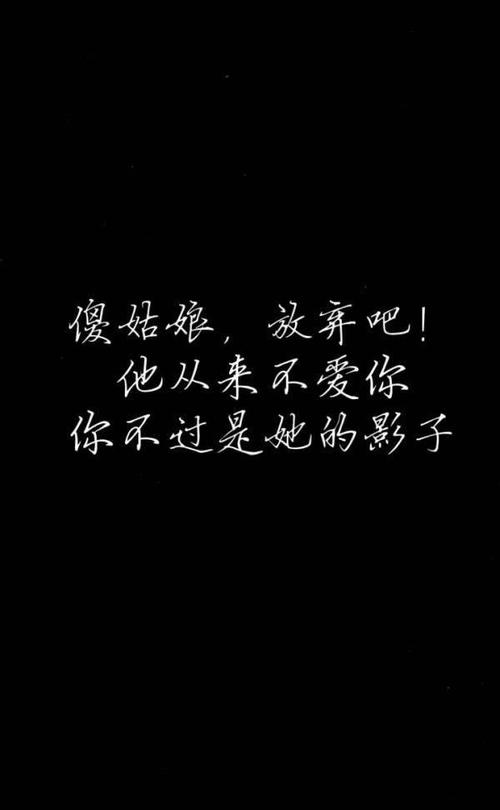 傻姑娘，放弃吧！
他从来不爱你
你不过是她的影子